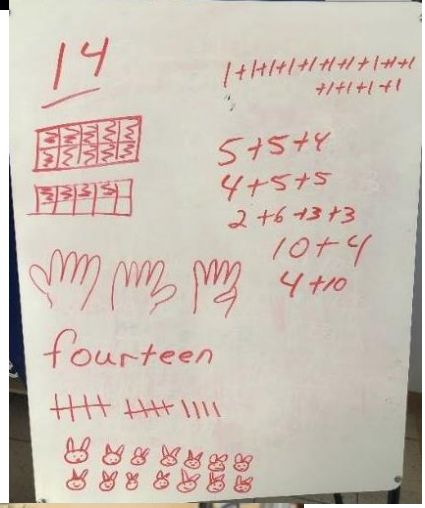 14
1+1+1+1+1+1+1+1+1+1
+1+1+1+1
5+5+4
4+5+5
2+6+3+3
10+4
4+10
fourteen